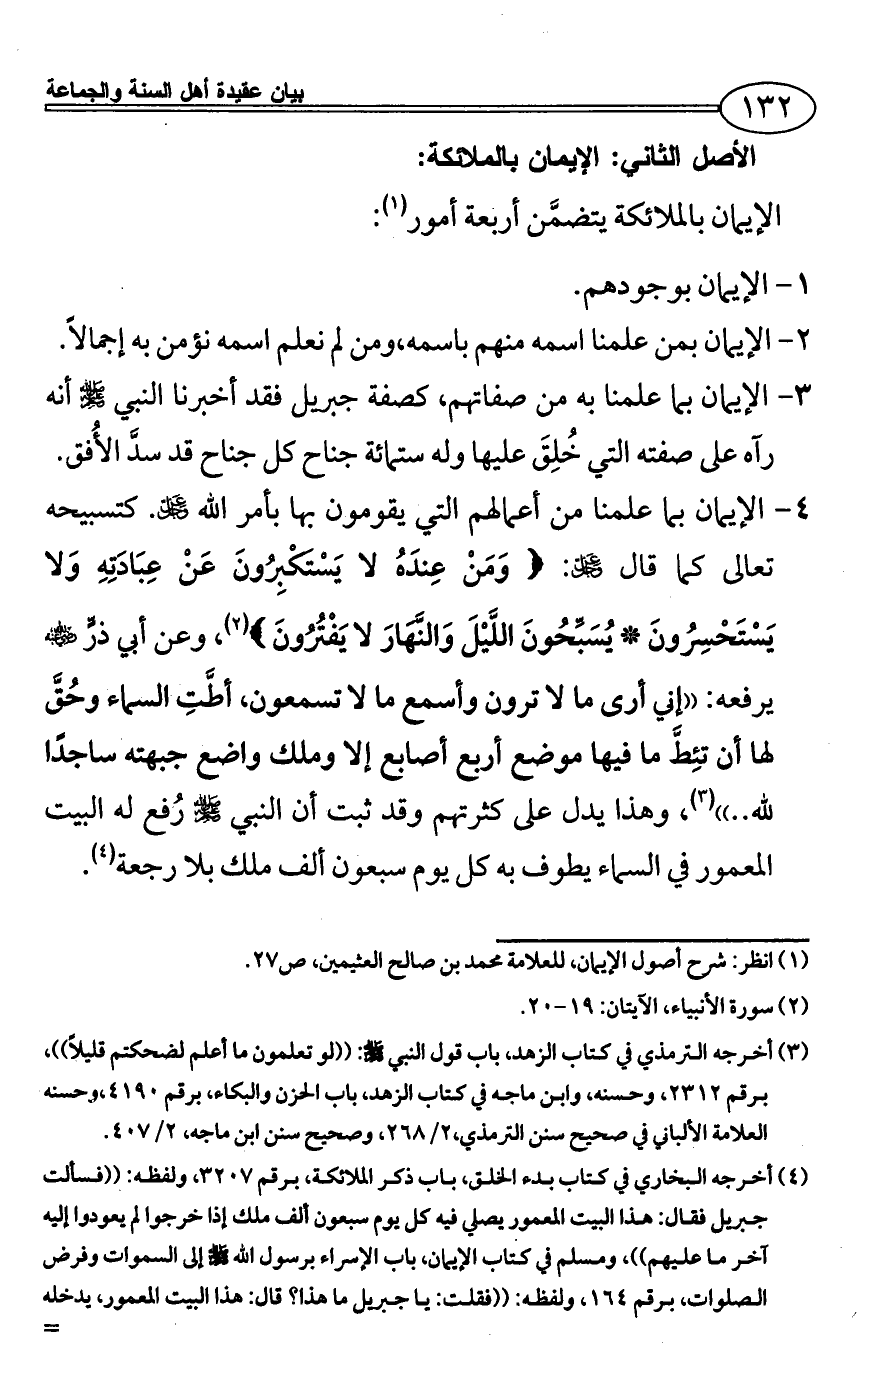 بيان عقيدة أهل السنة والجماعة
١٣٢
الأصل الثاني: الإيمان بالملائكة:
الإيمان بالملائكة يتضمَّن أربعة أمور(١):
١- الإيمان بوجودهم.
٢- الإيمان بمن علمنا اسمه منهم باسمه،ومن لم نعلم اسمه نؤمن به إجمالاً.
٣- الإيمان بما علمنا به من صفاتهم، كصفة جبريل فقد أخبرنا النبي ﷺ أنه
رآه على صفته التي خُلِقَ عليها وله ستمائة جناح كل جناح قد سدَّ الأُفق.
٤- الإيمان بما علمنا من أعمالهم التي يقومون بها بأمر الله ﷻ. كتسبيحه
تعالى كما قال ﷻ: ﴿ وَمَنْ عِندَهُ لا يَسْتَكْبِرُونَ عَنْ عِبَادَتِهِ وَلا
يَسْتَحْسِرُونَ * يُسَبِّحُونَ اللَّيْلَ وَالنَّهَارَ لا يَفْتُرُونَ ﴾(٢)، وعن أبي ذرٍّ ﵁
يرفعه: ((إني أرى ما لا ترون وأسمع ما لا تسمعون، أطَّتِ السماء وحُقَّ
لها أن تئِطَّ ما فيها موضع أربع أصابع إلا وملك واضع جبهته ساجدًا
لله..))(٣)، وهذا يدل على كثرتهم وقد ثبت أن النبي ﷺ رُفع له البيت
المعمور في السماء يطوف به كل يوم سبعون ألف ملك بلا رجعة(٤).
(١) انظر: شرح أصول الإيمان، للعلامة محمد بن صالح العثيمين، ص٢٧.
(٢) سورة الأنبياء، الآيتان: ١٩-٢٠.
(٣) أخرجه الترمذي في كتاب الزهد، باب قول النبي ﷺ: ((لو تعلمون ما أعلم لضحكتم قليلاً))،
برقم ٢٣١٢، وحسنه، وابن ماجه في كتاب الزهد، باب الحزن والبكاء، برقم ٤١٩٠،وحسنه
العلامة الألباني في صحيح سنن الترمذي،٢/ ٢٦٨، وصحيح سنن ابن ماجه، ٢/ ٤٠٧.
(٤) أخرجه البخاري في كتاب بدء الخلق، باب ذكر الملائكة، برقم ٣٢٠٧، ولفظه: ((فسألت
جبريل فقال: هذا البيت المعمور يصلي فيه كل يوم سبعون ألف ملك إذا خرجوا لم يعودوا إليه
آخر ما عليهم))، ومسلم في كتاب الإيمان، باب الإسراء برسول الله ﷺ إلى السموات وفرض
الصلوات، برقم ١٦٤، ولفظه: ((فقلت: يا جبريل ما هذا؟ قال: هذا البيت المعمور، يدخله
=